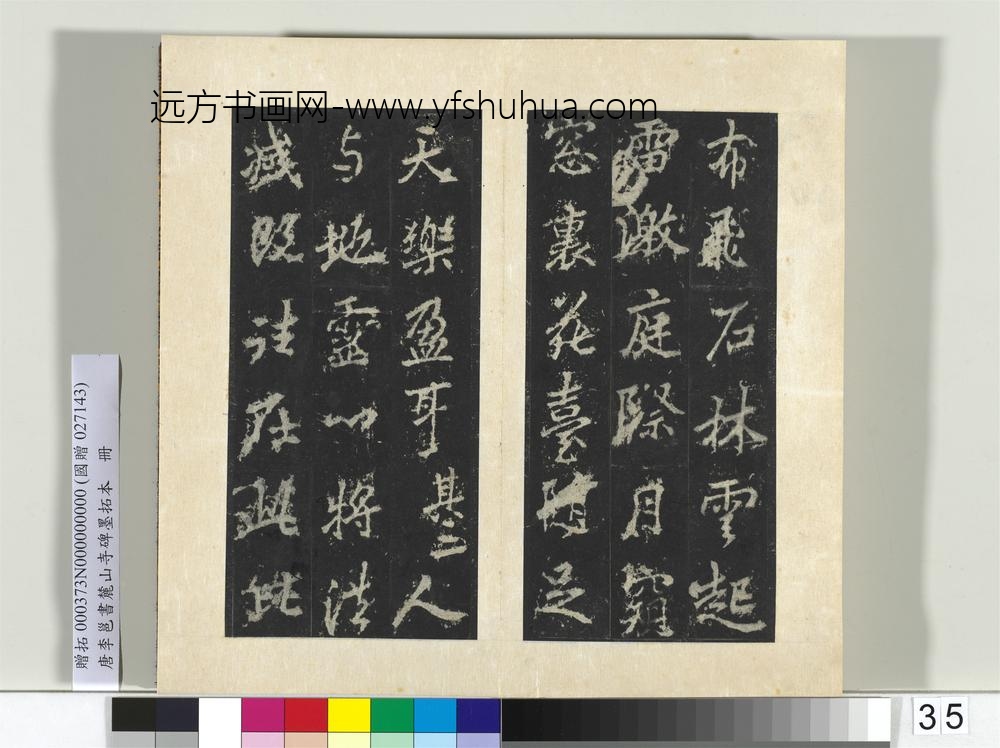 远方书画网-www.yfshuhua.com
布飛石林雲起
雷激庭際月窺
窓裏花臺隨足
天樂盈耳其二人
与地靈心將法
滅既往存此此
贈拓 000373N000000000 (國贈 027143)
唐李邕書麓山寺碑墨拓本 冊
35